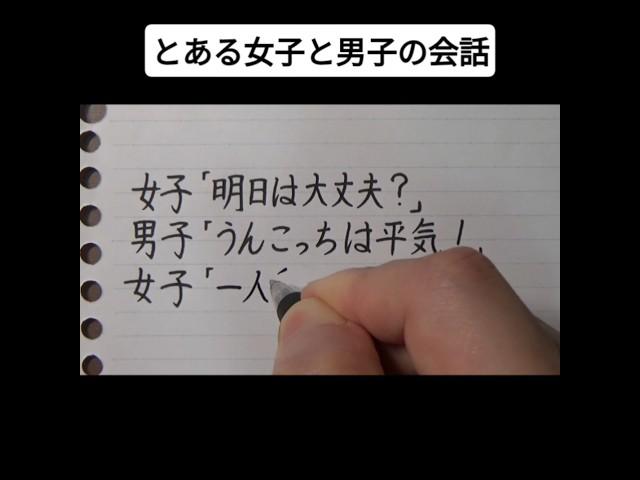 とある女子と男子の会話
女子「明日は大丈夫?」
男子「うんこっちは平気!」
女子「一人